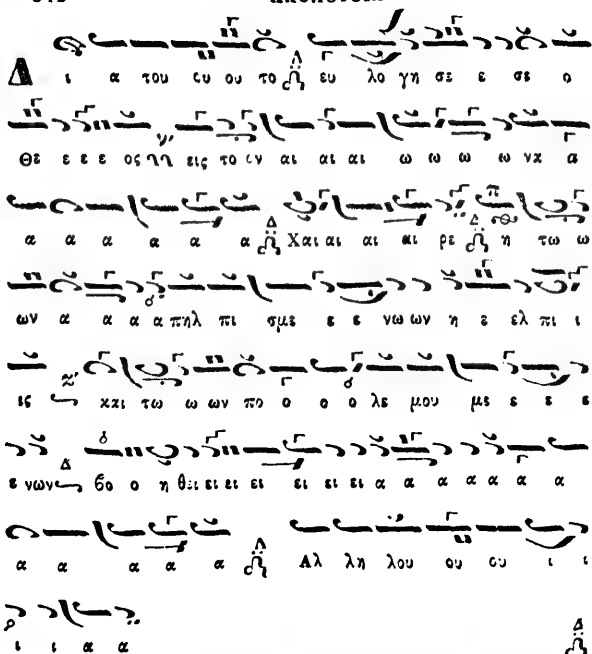 Δ ι α του ου ου το ευ λο γη σε ε σε ο
Θε ε ε ε ος εις το ον αι αι αι ω ω ω ω να α
α α α α α α α Χαι αι αι αι ρε η τω ω
ων α α α α πηλ πι σμε ε ε νω ων η ε ελ πι ι
ις και τω ω ων πο ο ο ο λε μου με ε ε ε
ε νων βο ο η θει ει ει ει ει ει ει α α α α α α α
α α α α α Αλ λη λου ου ου ι ι
ι ι α α